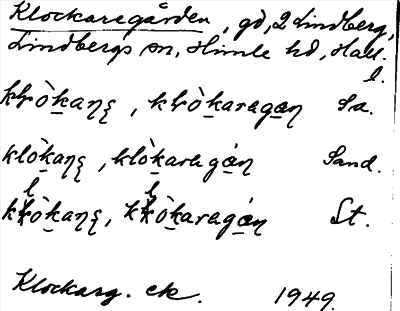 Klockaregården, gd, 2 Lindberg,
Lindbergs sn, Himle hd, Hall.
l.
kłòkaƞȩ, kłòkaragan Sa.
klòkaƞȩ, klòkaragán Sand.
kłòkaƞȩ, kłòkaragán St.
Klockarg. ek. 1949.